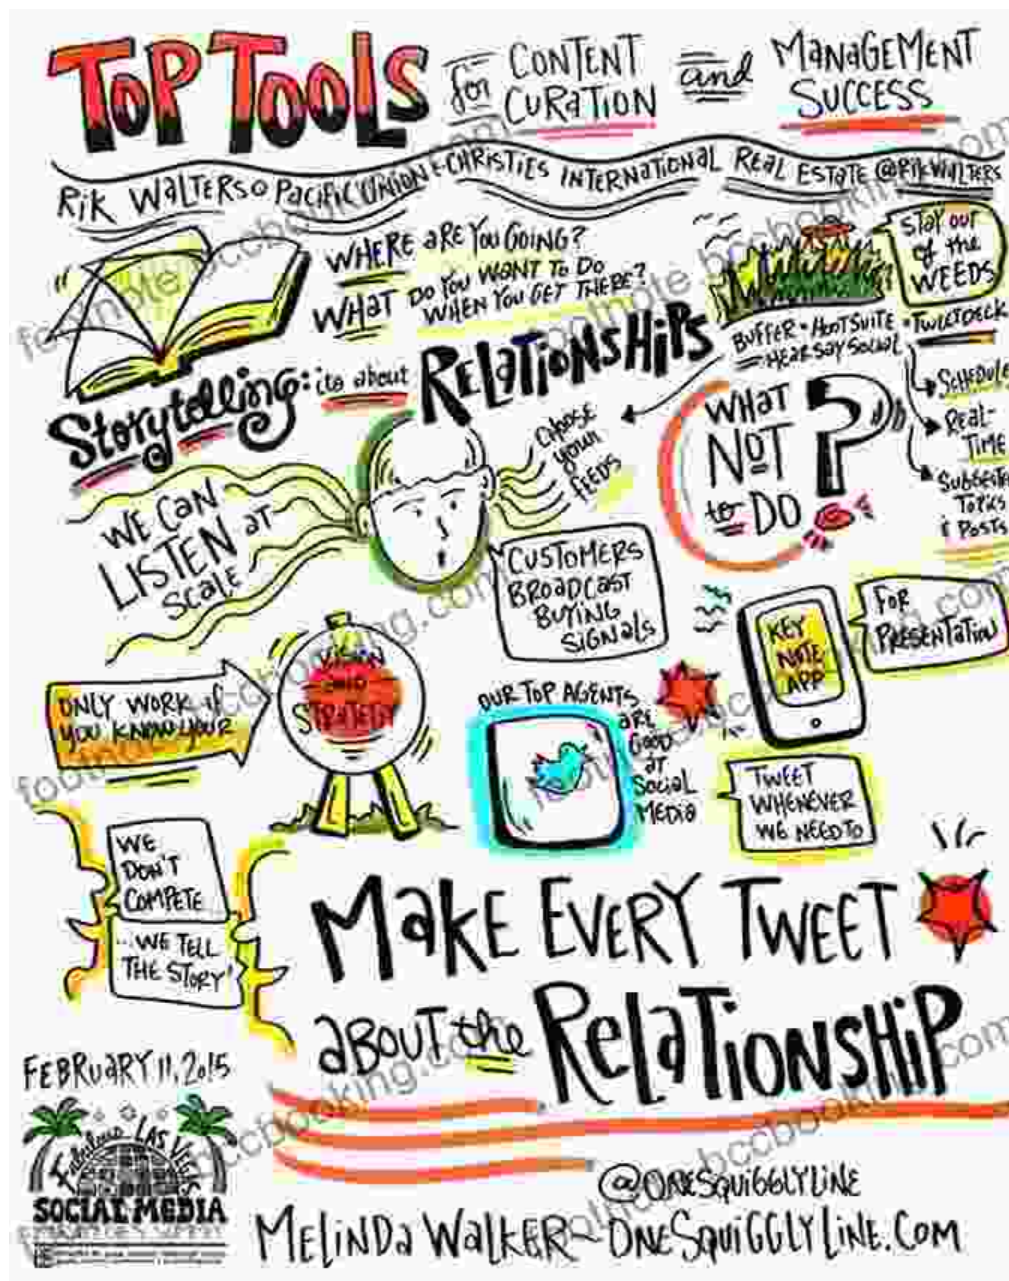 TOP TOOLS for CONTENT CURATION and MANAGEMENT SUCCESS
RIK WALTERS @ PACIFIC UNION & CHRISTIES INTERNATIONAL REAL ESTATE @RIKWALTERS
WHERE ARE YOU GOING?
WHAT DO YOU WANT TO DO
WHEN YOU GET THERE?
STAY OUT
of the
WEEDS
BUFFER • HOOTSUITE • TWEETDECK
HEARSAY SOCIAL
SCHEDULE
REAL-
TIME
TOPICS
& POSTS
Storytelling: its about RELATIONSHIPS
CHOOSE
your
FEEDS
WHAT
NOT
to DO
?
WE CAN
LISTEN AT
SCALE
CUSTOMERS
BROADCAST
BUYING
SIGNALS
KEY
NOTE
APP
FOR
PRESENTATION
ONLY WORK if
YOU KNOW YOUR
VISION
AND
STRATEGY
OUR TOP AGENTS
ARE
GOOD
AT
SOCIAL
MEDIA
TWEET
WHENEVER
WE NEED TO
WE
DON'T
COMPETE
...WE TELL
THE STORY
MAKE EVERY TWEET
ABOUT the RELATIONSHIP
FEBRUARY 11, 2015
Fabulous LAS VEGAS
SOCIAL MEDIA
@ONESQUIGGLYLINE
MELINDA WALKER ~ ONESQUIGGLYLINE.COM